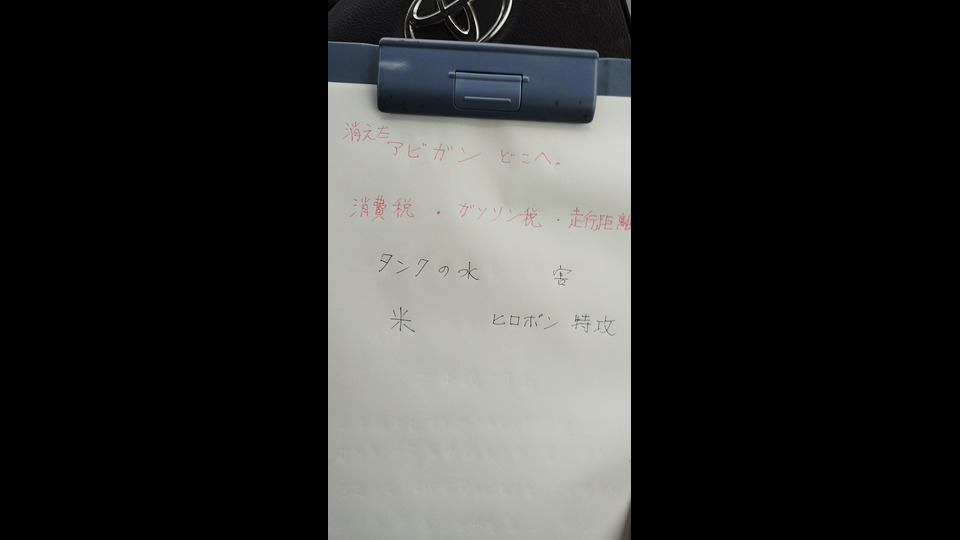 消えた
アビガン どこへ。
消費税 ・ ガソリン税 ・ 走行距離
タンクの水 客
米 ヒロポン 特攻